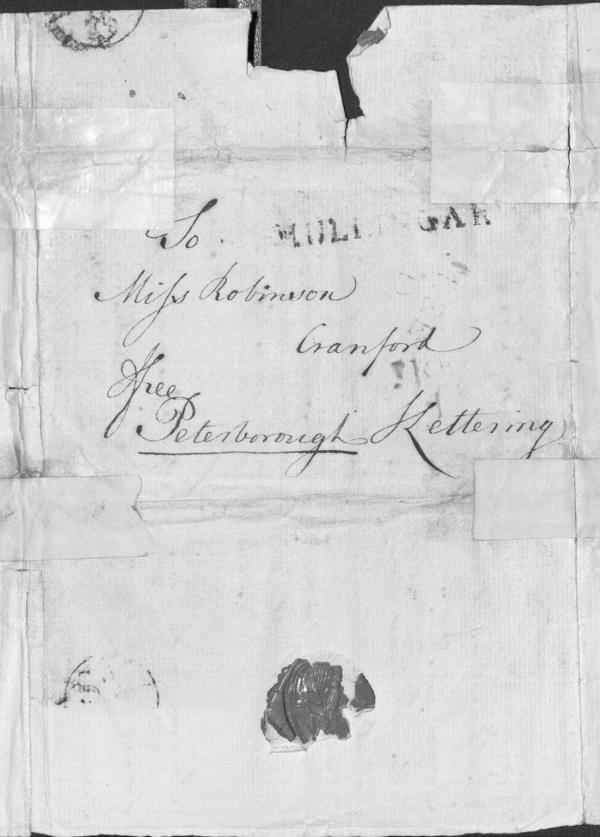 To
MULLINGAR
Miſs Robinson
Cranford
free
Peterborough Kettering